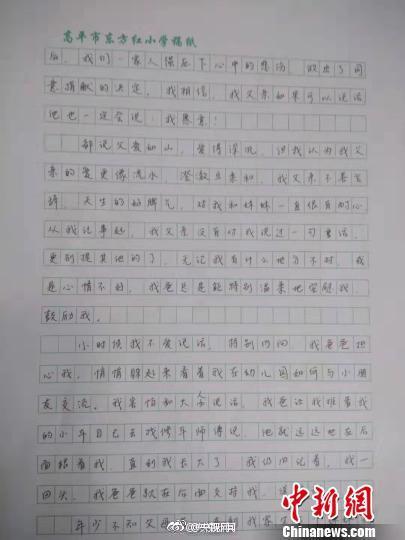 高平市东方红小学稿纸
后，我们一家人强忍下心中的悲伤 做出了同
意捐献的决定。我相信，我父亲如果可以说话
他也一定会说：我愿意！
都说父爱如山，爱得深沉。但我认为我父
亲的爱更像流水，澄澈且柔和。我父亲不善言
辞，天生的好脾气，对我和妹妹一直很有耐心
从我记事起，我父亲没有对我说过一句重话，
更别提其他的了。无论我有什么地方不对，我
是心情不好，我爸总是能特别温柔地安慰我，
鼓励我。
小时候我不爱说话，特别内向，我爸爸担
心我，悄悄躲起来看着我在幼儿园如何与小朋
友交流。我害怕和大人说话，我爸让我推着我
的小车自己去找修车师傅说，他就远远地在后
面跟着我。直到我长大了，我仍旧记着，我一
回头，我爸爸就在后面支持我。
年少不知父母
@央视新闻
中新网